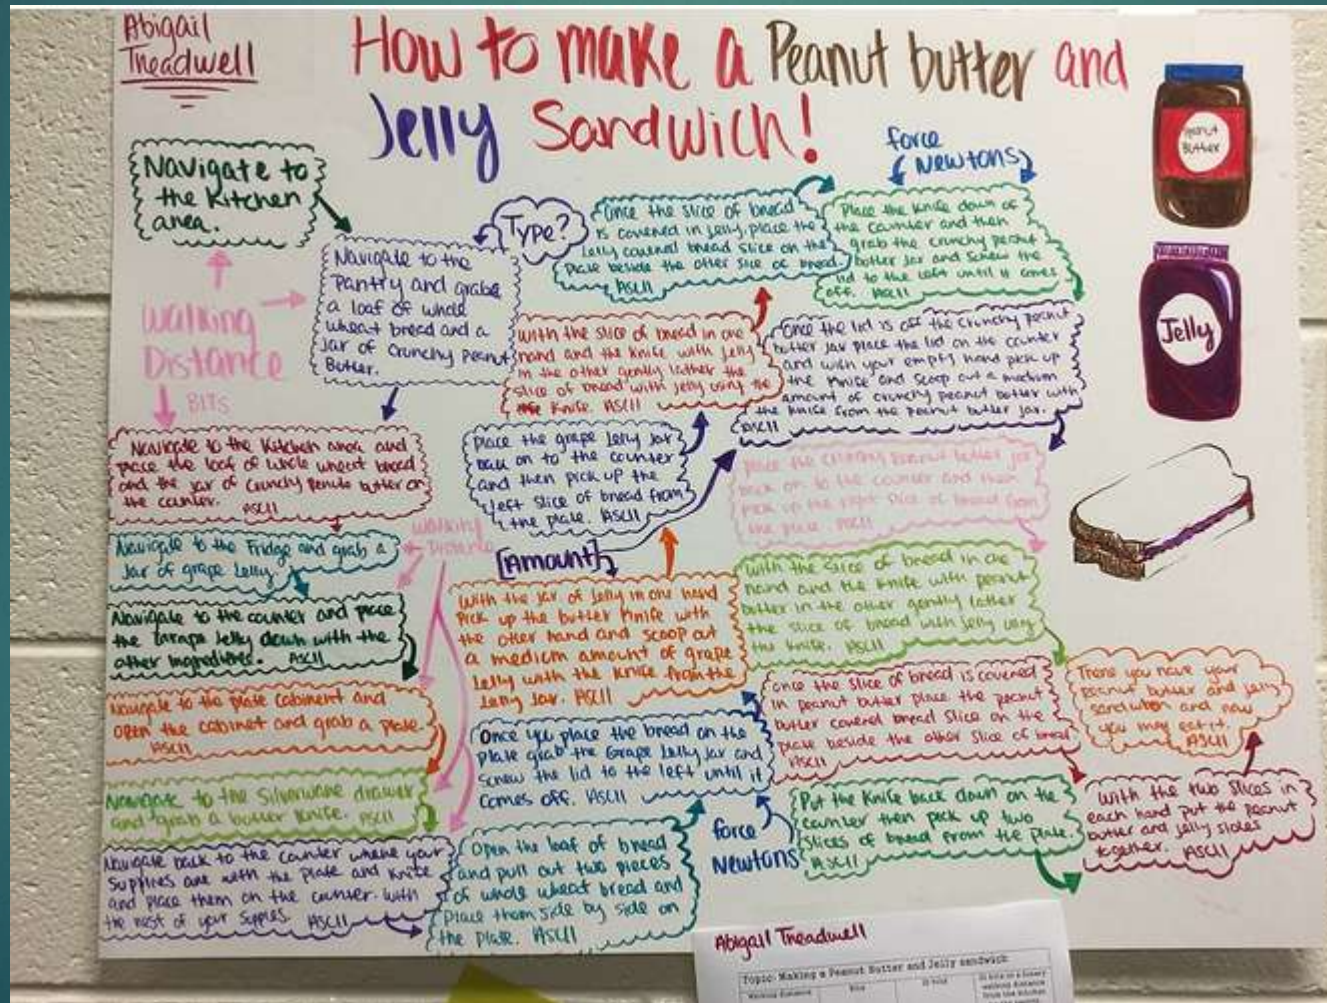 Abigail
Treadwell
How to make a Peanut butter and
Jelly Sandwich!
Navigate to
the Kitchen
area.
Walking
Distance
BITS
Navigate to the
Pantry and grabe
a loaf of whole
wheat bread and a
Jar of Crunchy Peanut
Butter.
Type?
Navigate to the Kitchen area and
place the loaf of whole wheat bread
and the jar of crunchy butter on
the counter. ASCII
Navigate to the Fridge and grab a
Jar of grape Jelly
Walking
Distance
Navigate to the counter and place
the Grape Jelly down with the
other ingredients. ASCII
Navigate to the plate cabinent and
open the cabinet and grab a plate.
ASCII
Navigate to the silverware drawer
and grab a butter knife. ASCII
Navigate back to the counter where your
supplies are with the plate and knife
and place them on the counter. with
the rest of your ASCII
Open the loaf of bread
and pull out two pieces
of whole wheat bread and
place them side by side on
the plate. ASCII
Once you place the bread on the
plate grab the Grape Jelly jar and
screw the lid to the left until it
comes off. ASCII
force
Newtons
[Amount]
With the jar of Jelly in one hand
Pick up the butter knife with
the other hand and scoop out
a medium amount of grape
Jelly with the knife from the
Jelly Jar. ASCII
Place the grape Jelly Jar
back on to the counter
and then pick up the
left slice of bread from
the plate. ASCII
With the slice of bread in one
hand and the knife with jelly
in the other gently lather the
slice of bread with jelly using the
knife. ASCII
Once the slice of bread
is covered in jelly, place the
Jelly covered bread slice on the
plate beside the other slice of bread.
ASCII
force
Newtons
Place the knife down of
the counter and then
grab the crunchy peanut
butter jar and screw the
lid to the left until it comes
off. ASCII
Once the lid is off the crunchy peanut
butter jar place the lid on the counter
and with your empty hand pick up
the knife and scoop out a medium
amount of crunchy peanut butter with
the knife from the peanut butter jar.
ASCII
place the crunchy peanut butter jar
back on to the counter and then
pick up the right slice of bread from
the plate. ASCII
With the slice of bread in one
hand and the knife with peanut
butter in the other gently latter
the slice of bread with jelly using
the knife. ASCII
once the slice of bread is covered
in peanut butter place the peanut
butter covered bread slice on the
plate beside the other slice of bread
ASCII
Put the knife back down on the
counter then pick up two
slices of bread from the plate.
ASCII
With the two slices in
each hand put the peanut
butter and jelly sides
together. ASCII
you have your
peanut butter and jelly
sandwich and now
you may eat it.
ASCII
Peanut
Butter
Jelly
Abigail Treadwell
Topic: Making a Peanut Butter and Jelly sandwich